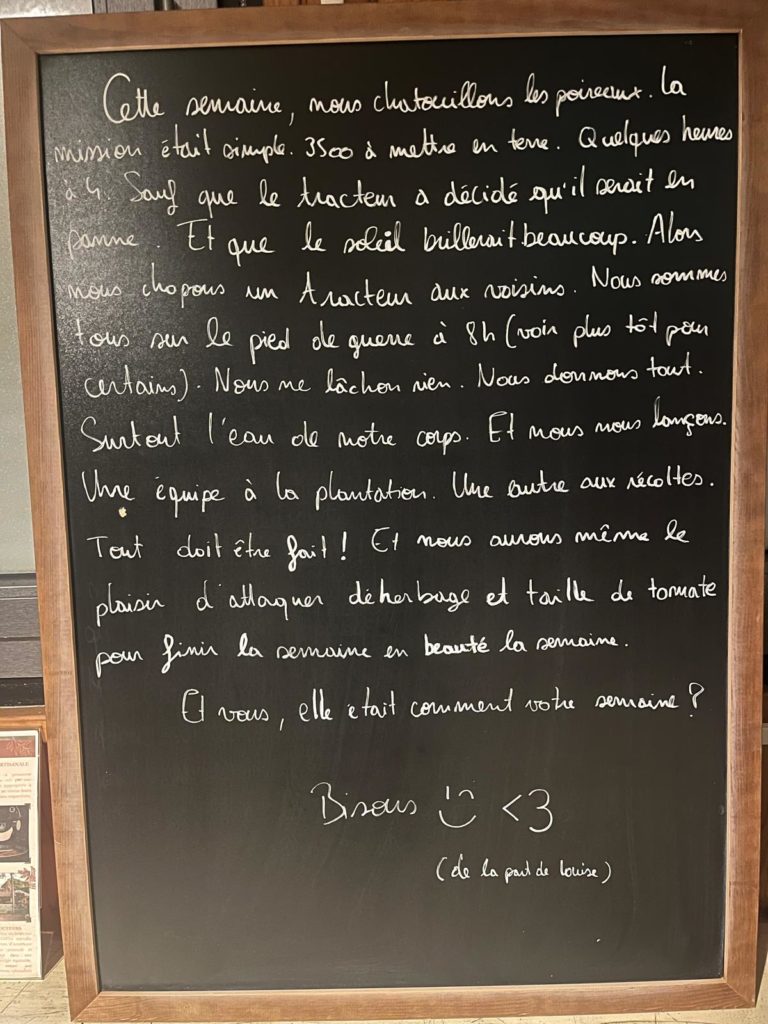 Cette semaine, nous chatouillons les poireaux. La
mission était simple. 3500 à mettre en terre. Quelques heures
à 4. Sauf que le tracteur a décidé qu'il serait en
panne. Et que le soleil brillerait beaucoup. Alors
nous chopons un tracteur aux voisins. Nous sommes
tous sur le pied de guerre à 8h (voir plus tôt pour
certains). Nous ne lâchon rien. Nous donnons tout.
Surtout l'eau de notre corps. Et nous nous lançons.
Une équipe à la plantation. Une autre aux récoltes.
Tout doit être fait! Et nous aurons même le
plaisir d'attaquer désherbage et taille de tomate
pour finir la semaine en beauté la semaine.
Et vous, elle était comment votre semaine?
Bisous <3
(de la part de Louise)
ARTISANALE